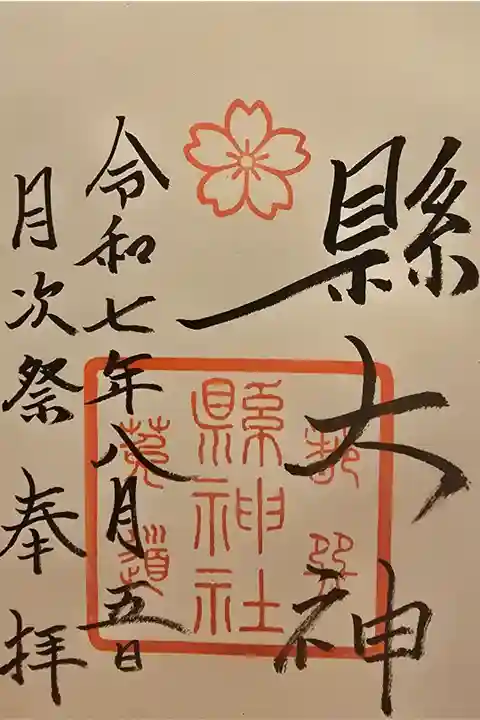 縣大神
縣神社
令和七年八月五日
月次祭 奉拝